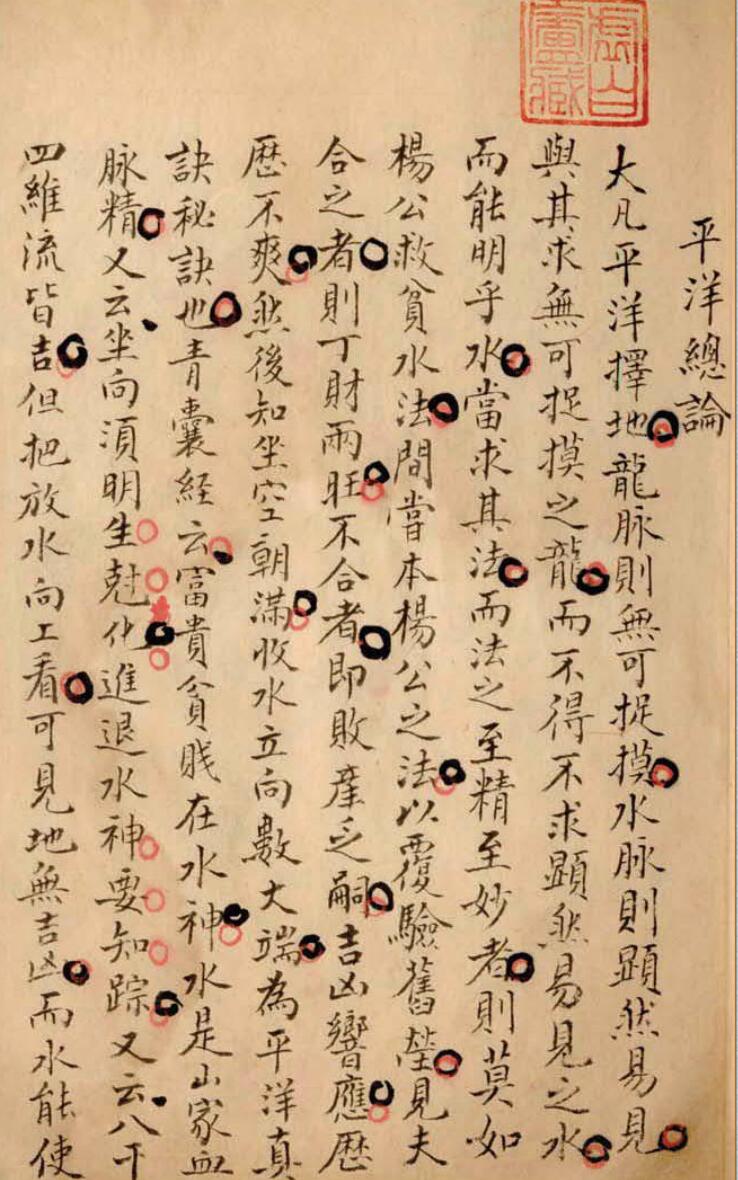 虛白廬藏
平洋總論
大凡平洋擇地龍脉則無可捉摸水脉則顕然易見
與其求無可捉摸之龍而不得不求顕然易見之水
而能明乎水當求其法而法之至精至妙者則莫如
楊公救貧水法間嘗本楊公之法以覆驗舊塋見夫
合之者則丁財兩旺不合者即敗産乏嗣吉凶響應歷
歷不爽然後知坐空朝滿收水立向數大端為平洋真
訣秘訣也青囊経云富貴貧賎在水神水是山家血
脉精又云坐向須明生尅化進退水神要知踪又云八干
四維流皆吉但把放水向上看可見地無吉凶而水能使